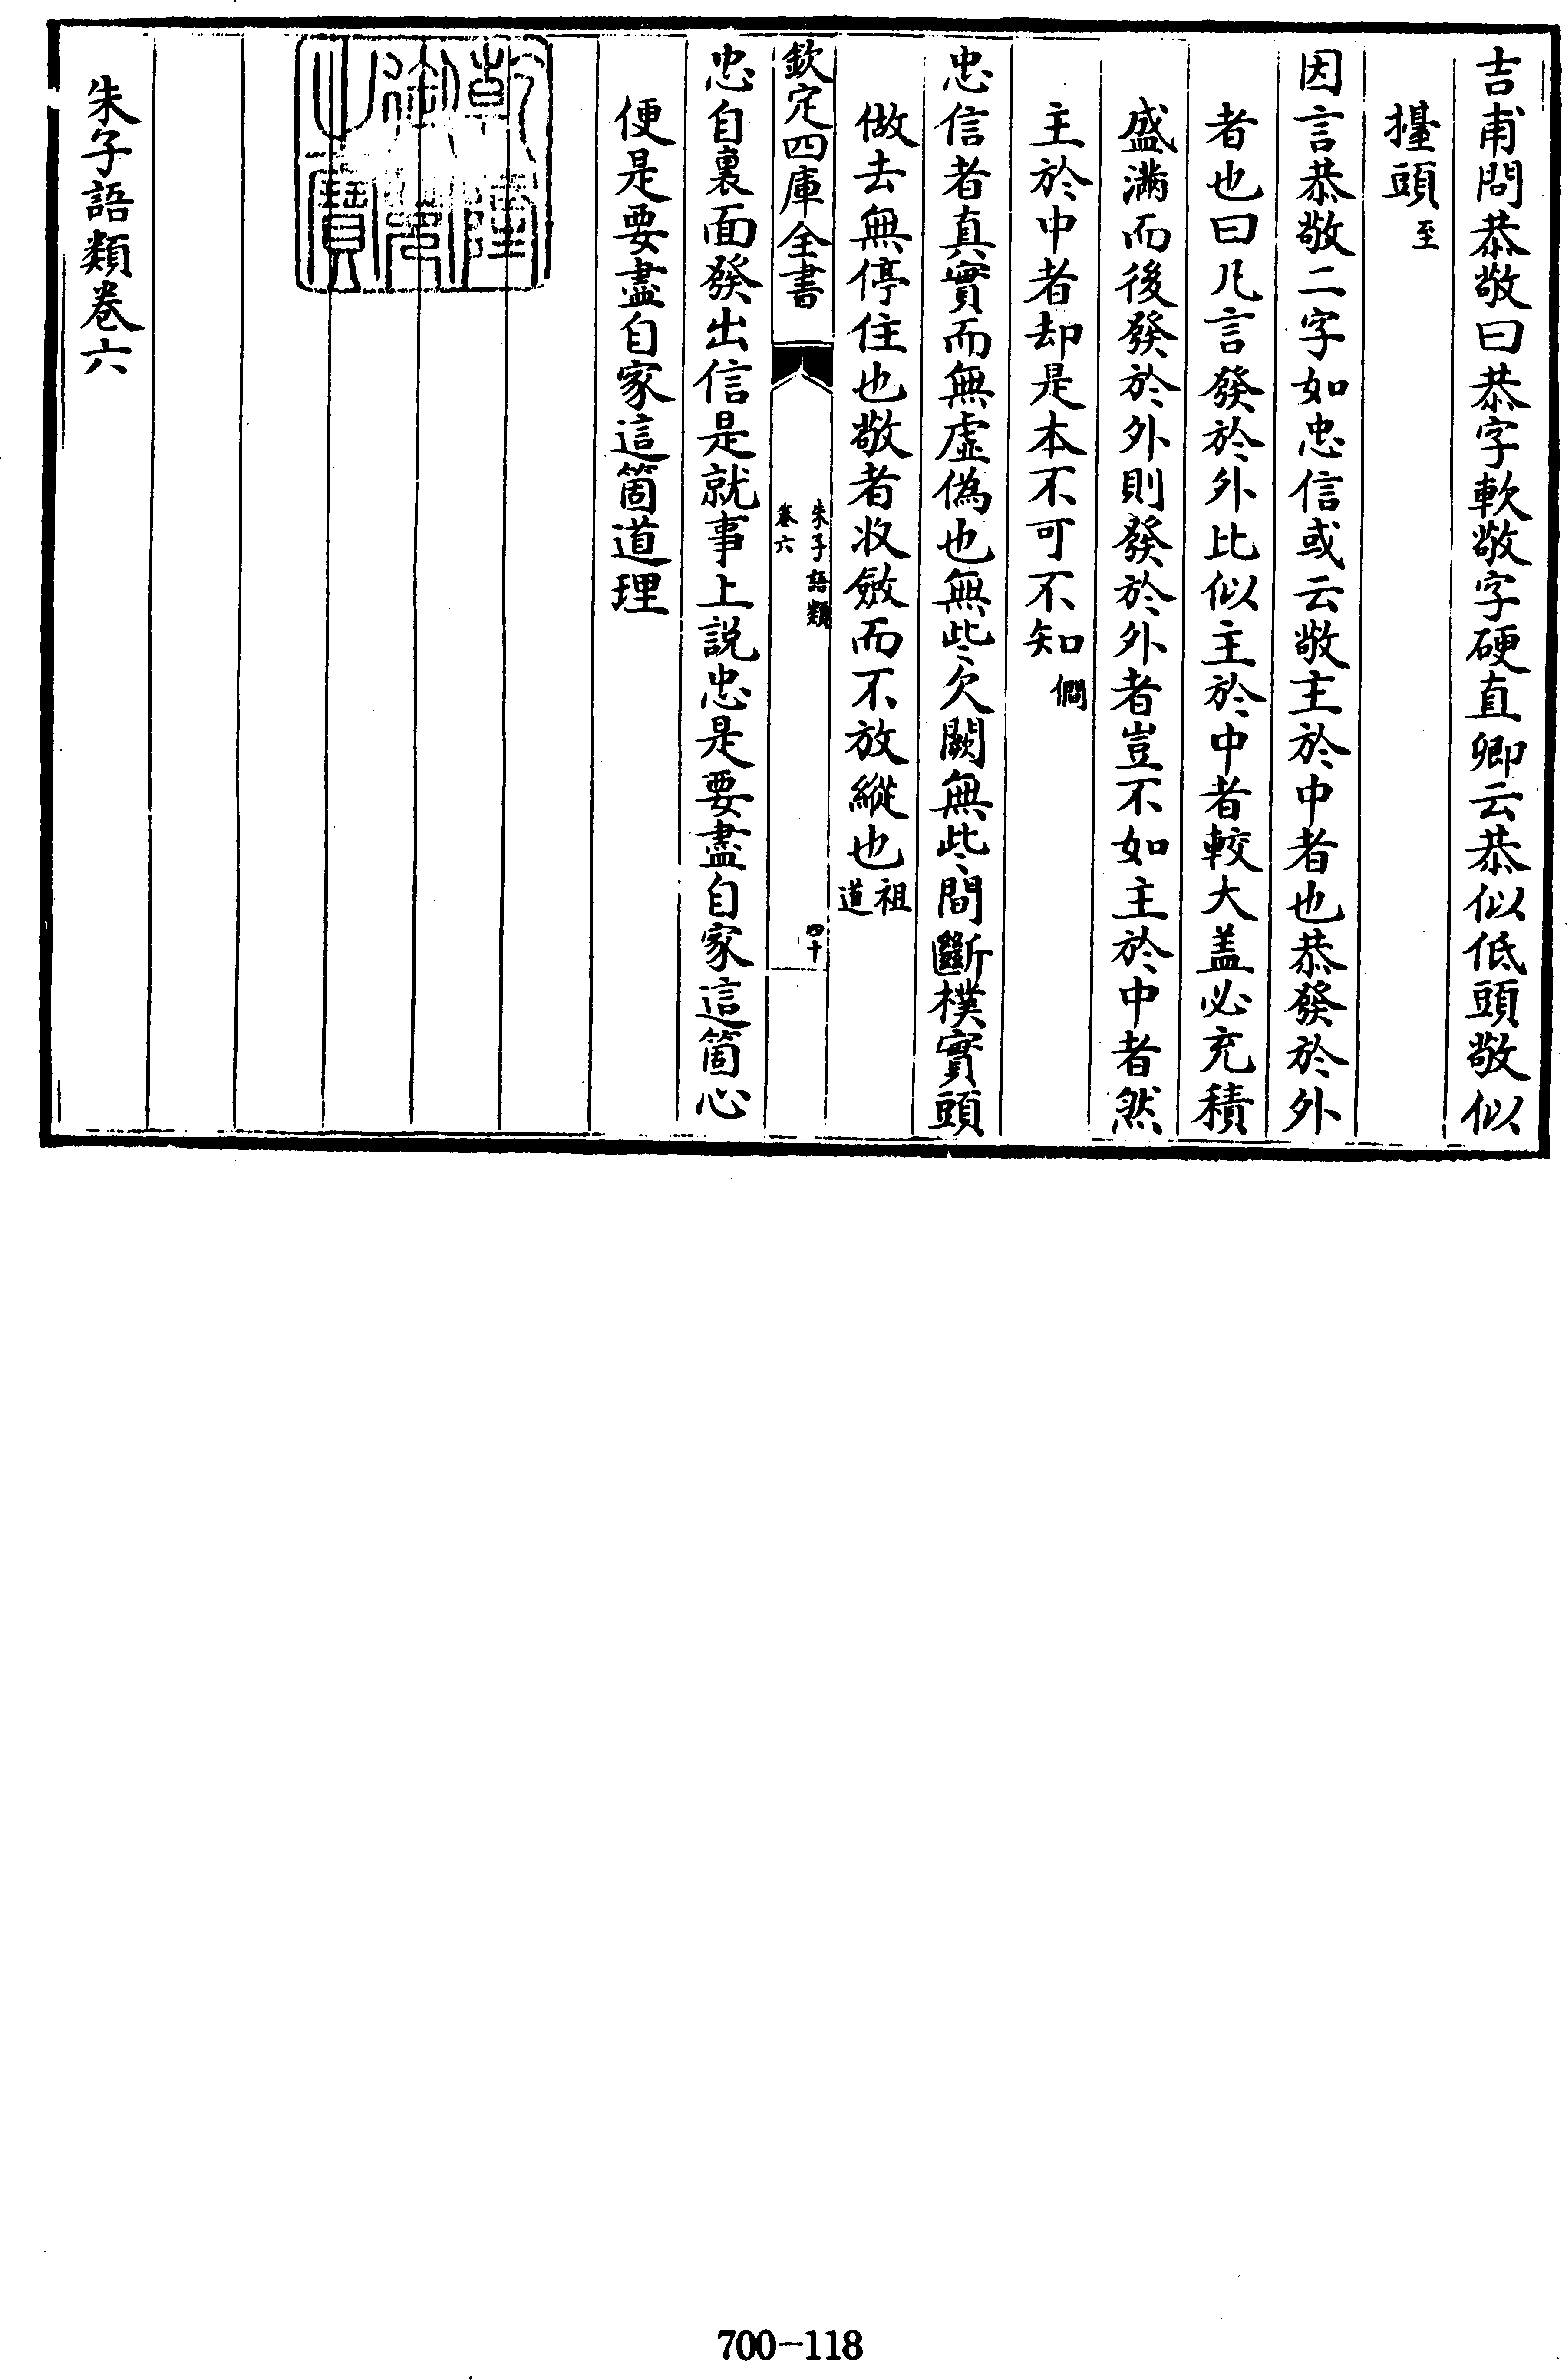 吉甫問恭敬曰恭字軟敬字硬直卿云恭似低頭敬似
擡頭至
因言恭敬二字如忠信或云敬主於中者也恭發於外
者也曰凡言發於外比似主於中者較大盖必充積
盛滿而後發於外則發於外者豈不如主於中者然
主於中者却是本不可不知僩
忠信者真實而無虛偽也無些欠闕無些間斷樸實頭
做去無停住也敬者收斂而不放縱也祖道
欽定四庫全書
朱子語類
卷六
四十
忠自裏面發出信是就事上説忠是要盡自家這箇心
便是要盡自家這箇道理
乾隆御覽之寶
朱子語類卷六
700-118